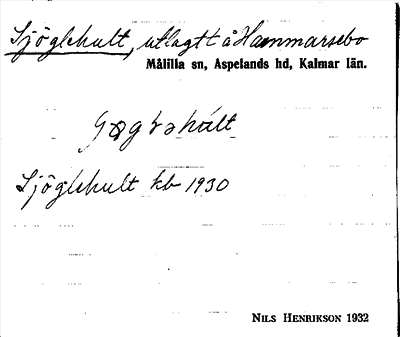 Sjöglehult, utlagt å Hammarsebo
Målilla sn, Aspelands hd, Kalmar län.
Sjöglehult kb 1930
NILS HENRIKSON 1932